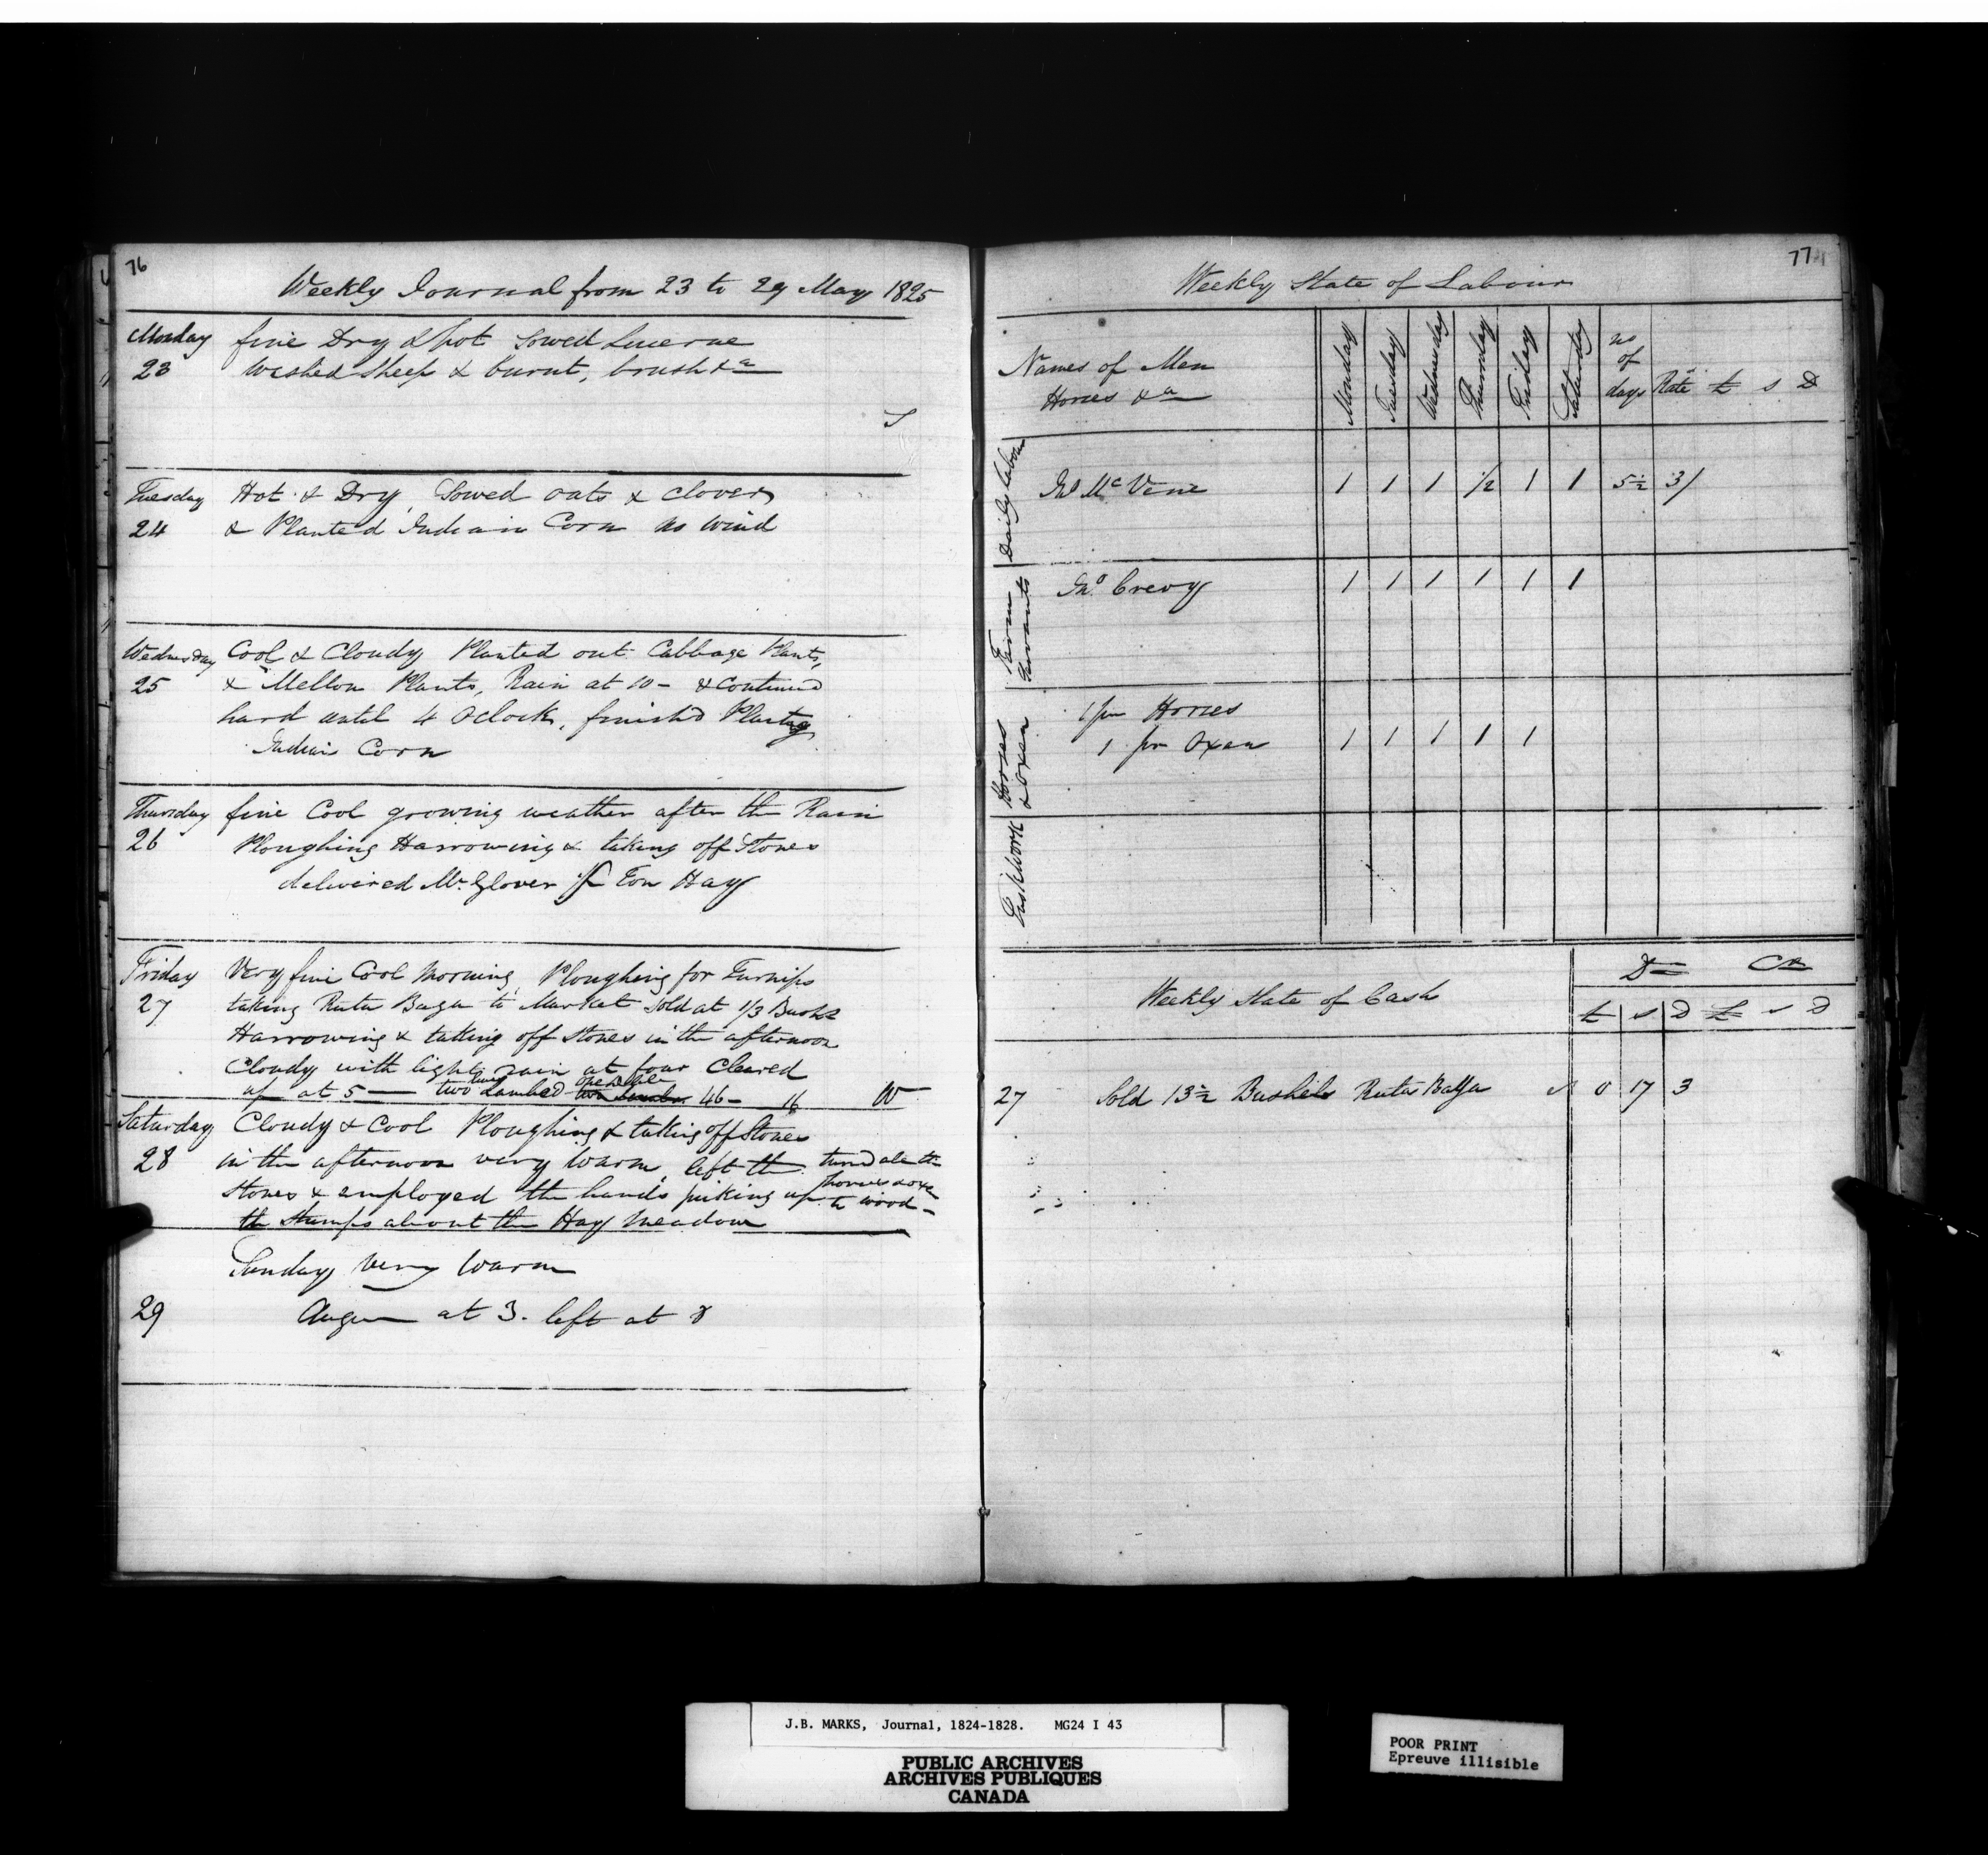 76
Weekly Journal from 23 to 29 May 1825
Monday fine Dry & hot Sowed Lucerne
23 Washed Sheep & burnt, brush &a
Tuesday Hot & Dry, Sowed oats & clover
24 & Planted Indian Corn no wind
Wednesday Cool & Cloudy Planted out Cabbage Plants,
25 & Mellon Plants, Rain at 10 - & continued
hard until 4 Oclock, finish'd Planting
Indian Corn
Thursday fine Cool growing weather after the Rain
26 Ploughing Harrowing & taking off Stones
delivered Mr. Glover Ton Hay
Friday Very fine Cool Morning, Ploughing for Turnips
27 taking Ruta Baga to Market Sold at 1/3 Bushl
Harrowing & taking off stones in the afternoon
Cloudy with light rain at four Cleared
up at 5 — two Lambed 46 - 16 W
Saturday Cloudy & Cool Ploughing & taking off Stones
28 in the afternoon very warm, left the
stones & employed the hands piking up
the stumps about the Hay meadow
turned ale the
horses & oxen
to wood -
Sunday very warm
29 at 3. left at 8
77
Weekly State of Labour
Names of Men
Horses &a
Monday Tuesday Wednesday Thursday Friday Saturday no of days Rate £ s D
Daily Labour
Jno McVene 1 1 1 1/2 1 1 5½ 3/
Farm Servants
Jno. Crevy 1 1 1 1 1 1
Horses & Oxen
1 pr Horses
1 pr Oxen 1 1 1 1 1
Taskwork
Weekly State of Cash
Dr Cr
£ s D £ s D
27 Sold 13½ Bushels Ruta Baga 0 17 3
J.B. MARKS, Journal, 1824-1828. MG24 I 43
PUBLIC ARCHIVES
ARCHIVES PUBLIQUES
CANADA
POOR PRINT
Epreuve illisible